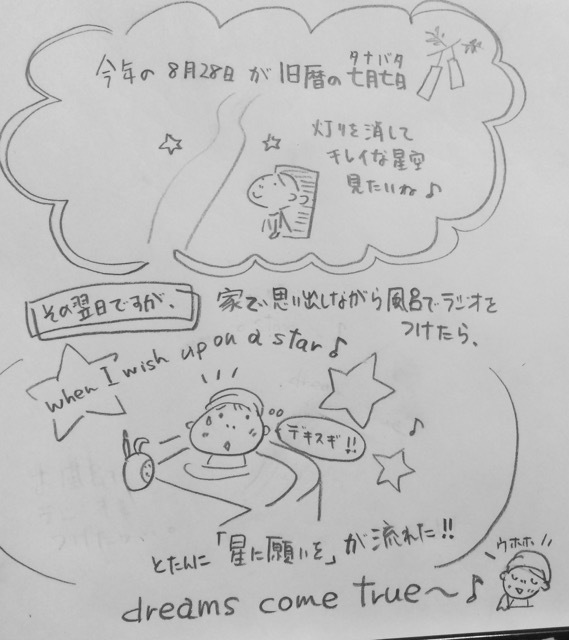 タナバタ
今年の8月28日が旧暦の七月七日
灯りを消して
キレイな星空
見たいね♪
その翌日ですが、
家で思い出しながら風呂でラジオを
つけたら、
when I wish upon a star♪
デキスギ!!
とたんに「星に願いを」が流れた!!
ウホホ
dreams come true〜♪